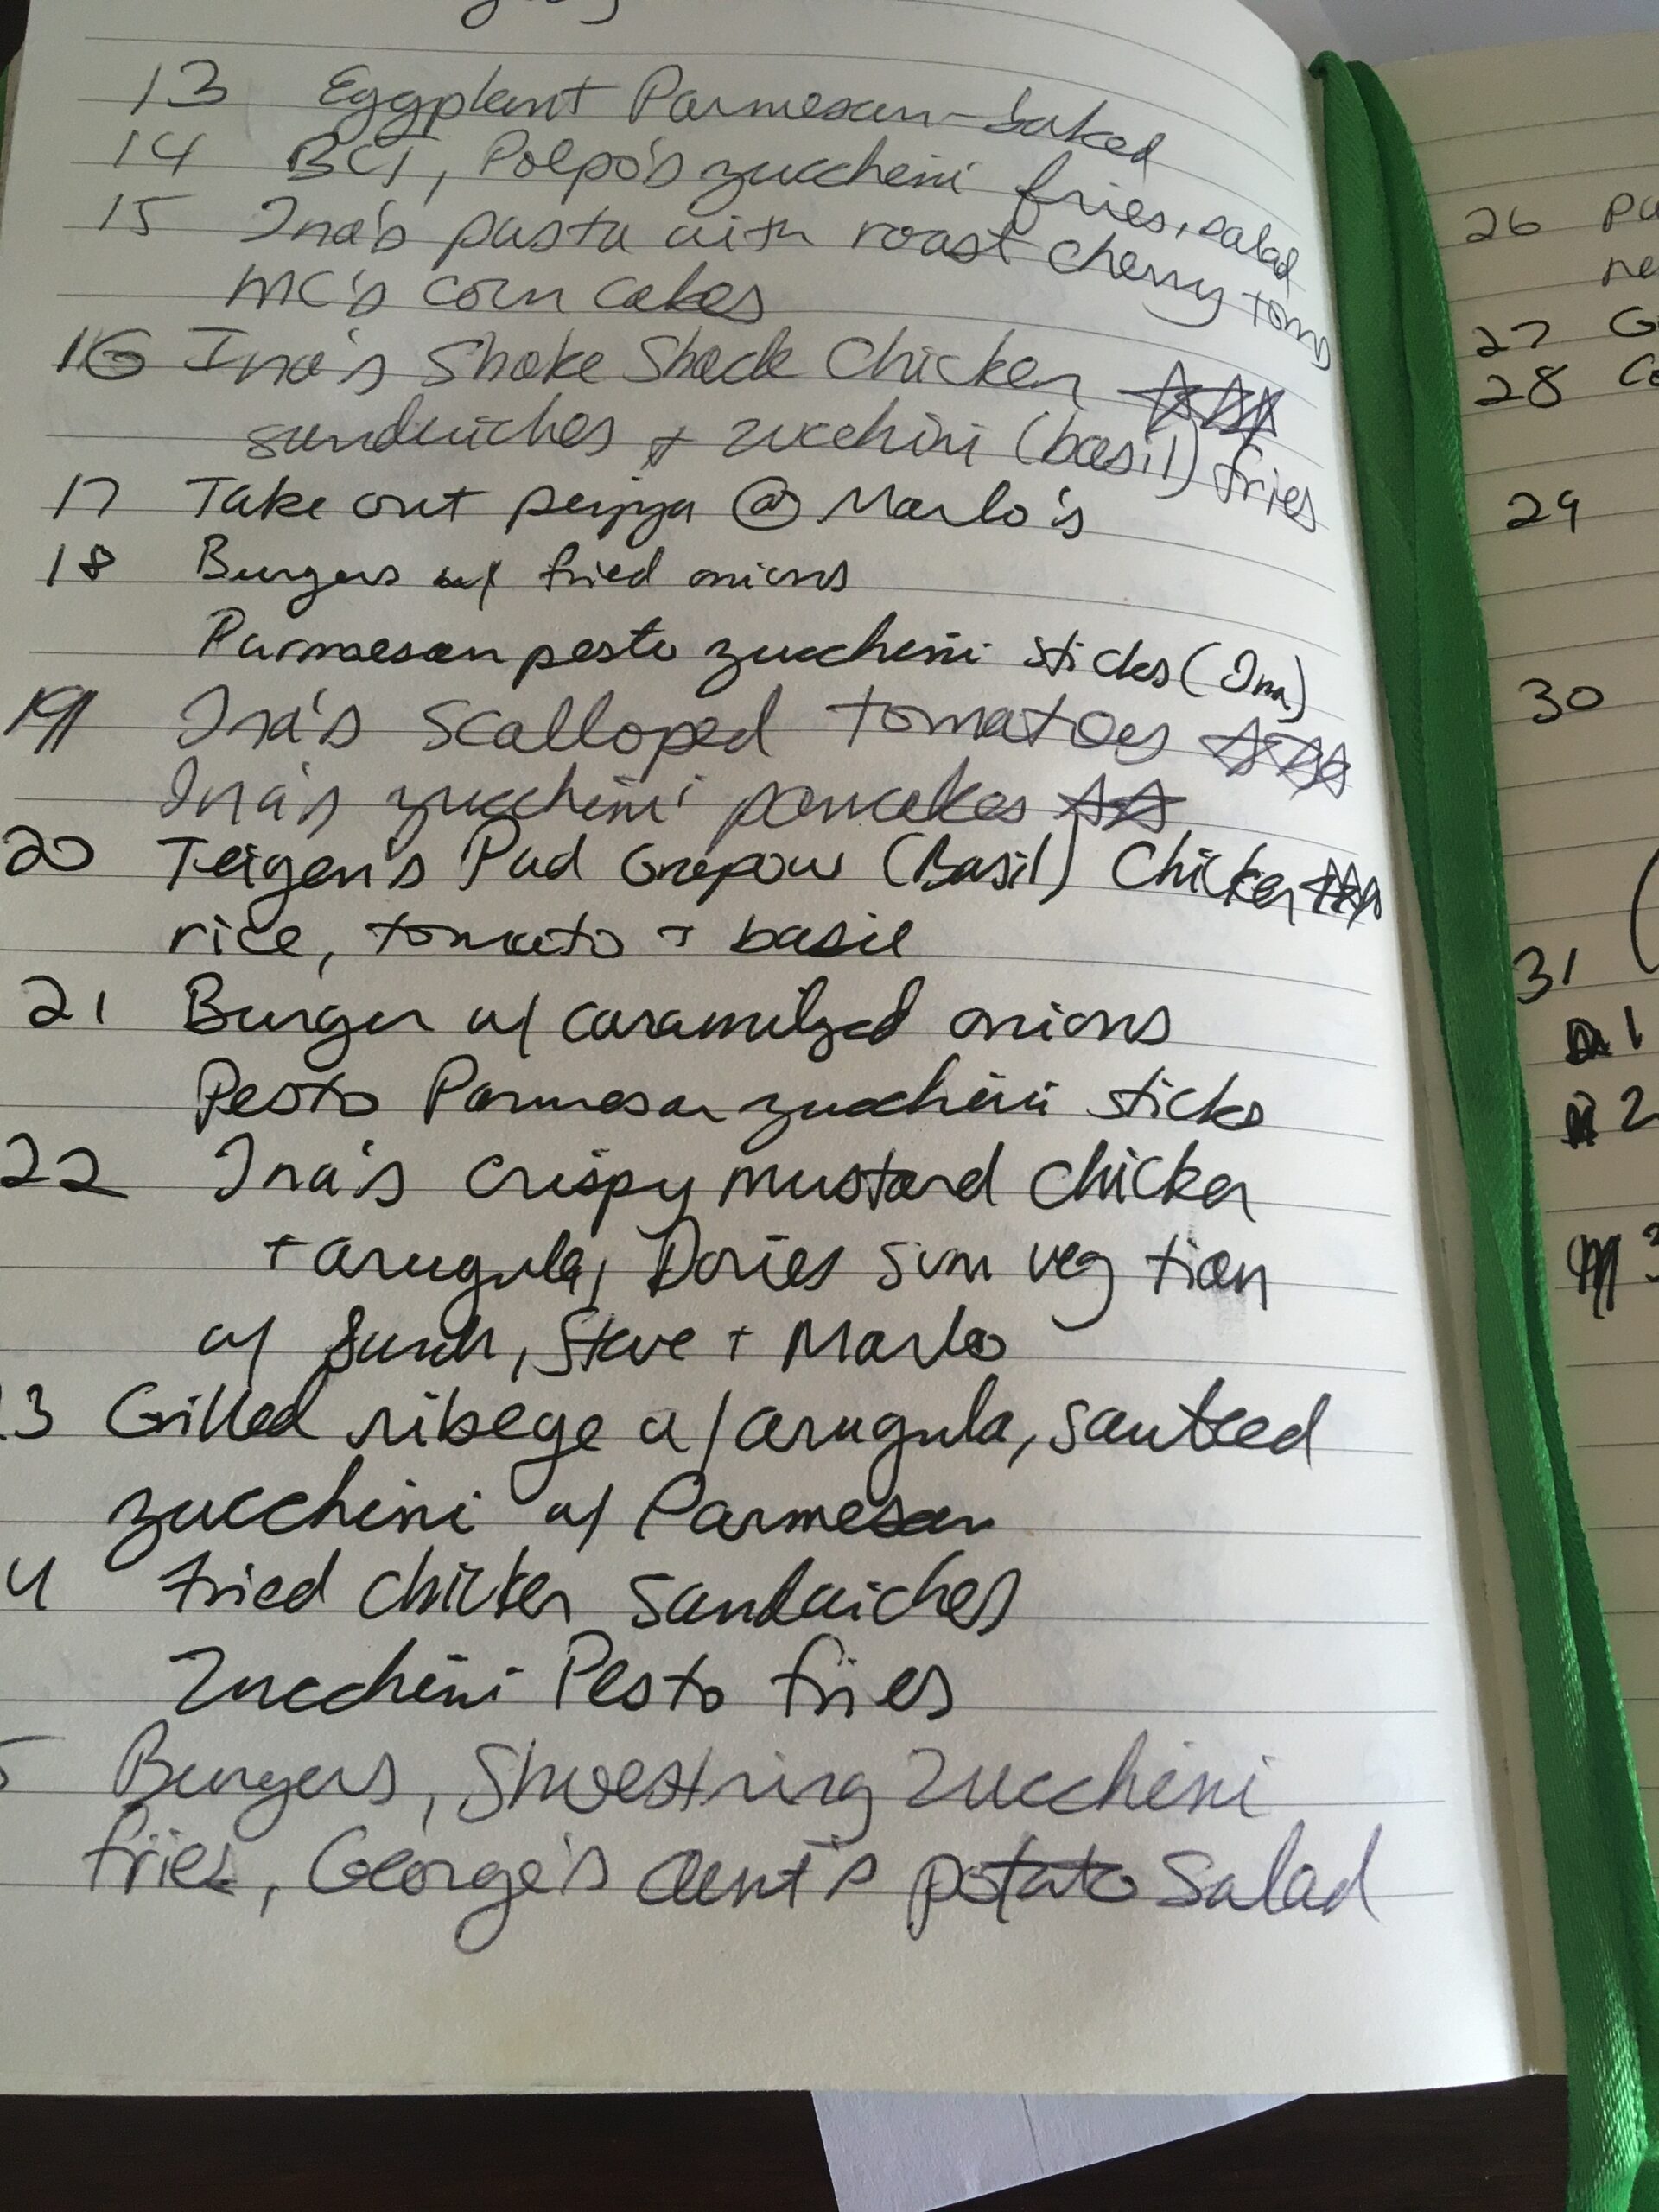 13 Eggplant Parmesan-baked
14 BCT, Polpo's zucchini fries, salad
15 Ina's pasta with roast cherry toms
MC's corn cakes
16 Ina's Shake Shack Chicken
sandwiches + zucchini (basil) fries
17 Take out @ Marlo's
18 Burgers w/ fried onions
Parmesan pesto zucchini sticks (Ina)
19 Ina's Scalloped tomatoes
Ina's zucchini pancakes
20 Teigen's Pad Grapow (Basil) Chicken
rice, tomato + basil
21 Burger w/ caramilzed onions
Pesto Parmesan zucchini sticks
22 Ina's Crispy mustard chicken
+ arugula, Dories sum veg tian
w/ Steve + Marlo
3 Grilled ribeye w/ arugula, sauteed
zucchini w/ Parmesan
4 fried chicken sandwiches
Zucchini Pesto fries
5 Burgers, Shoestring Zucchini
fries, George's aunt's potato Salad
26
27
28
29
30
31
1
2
M 3